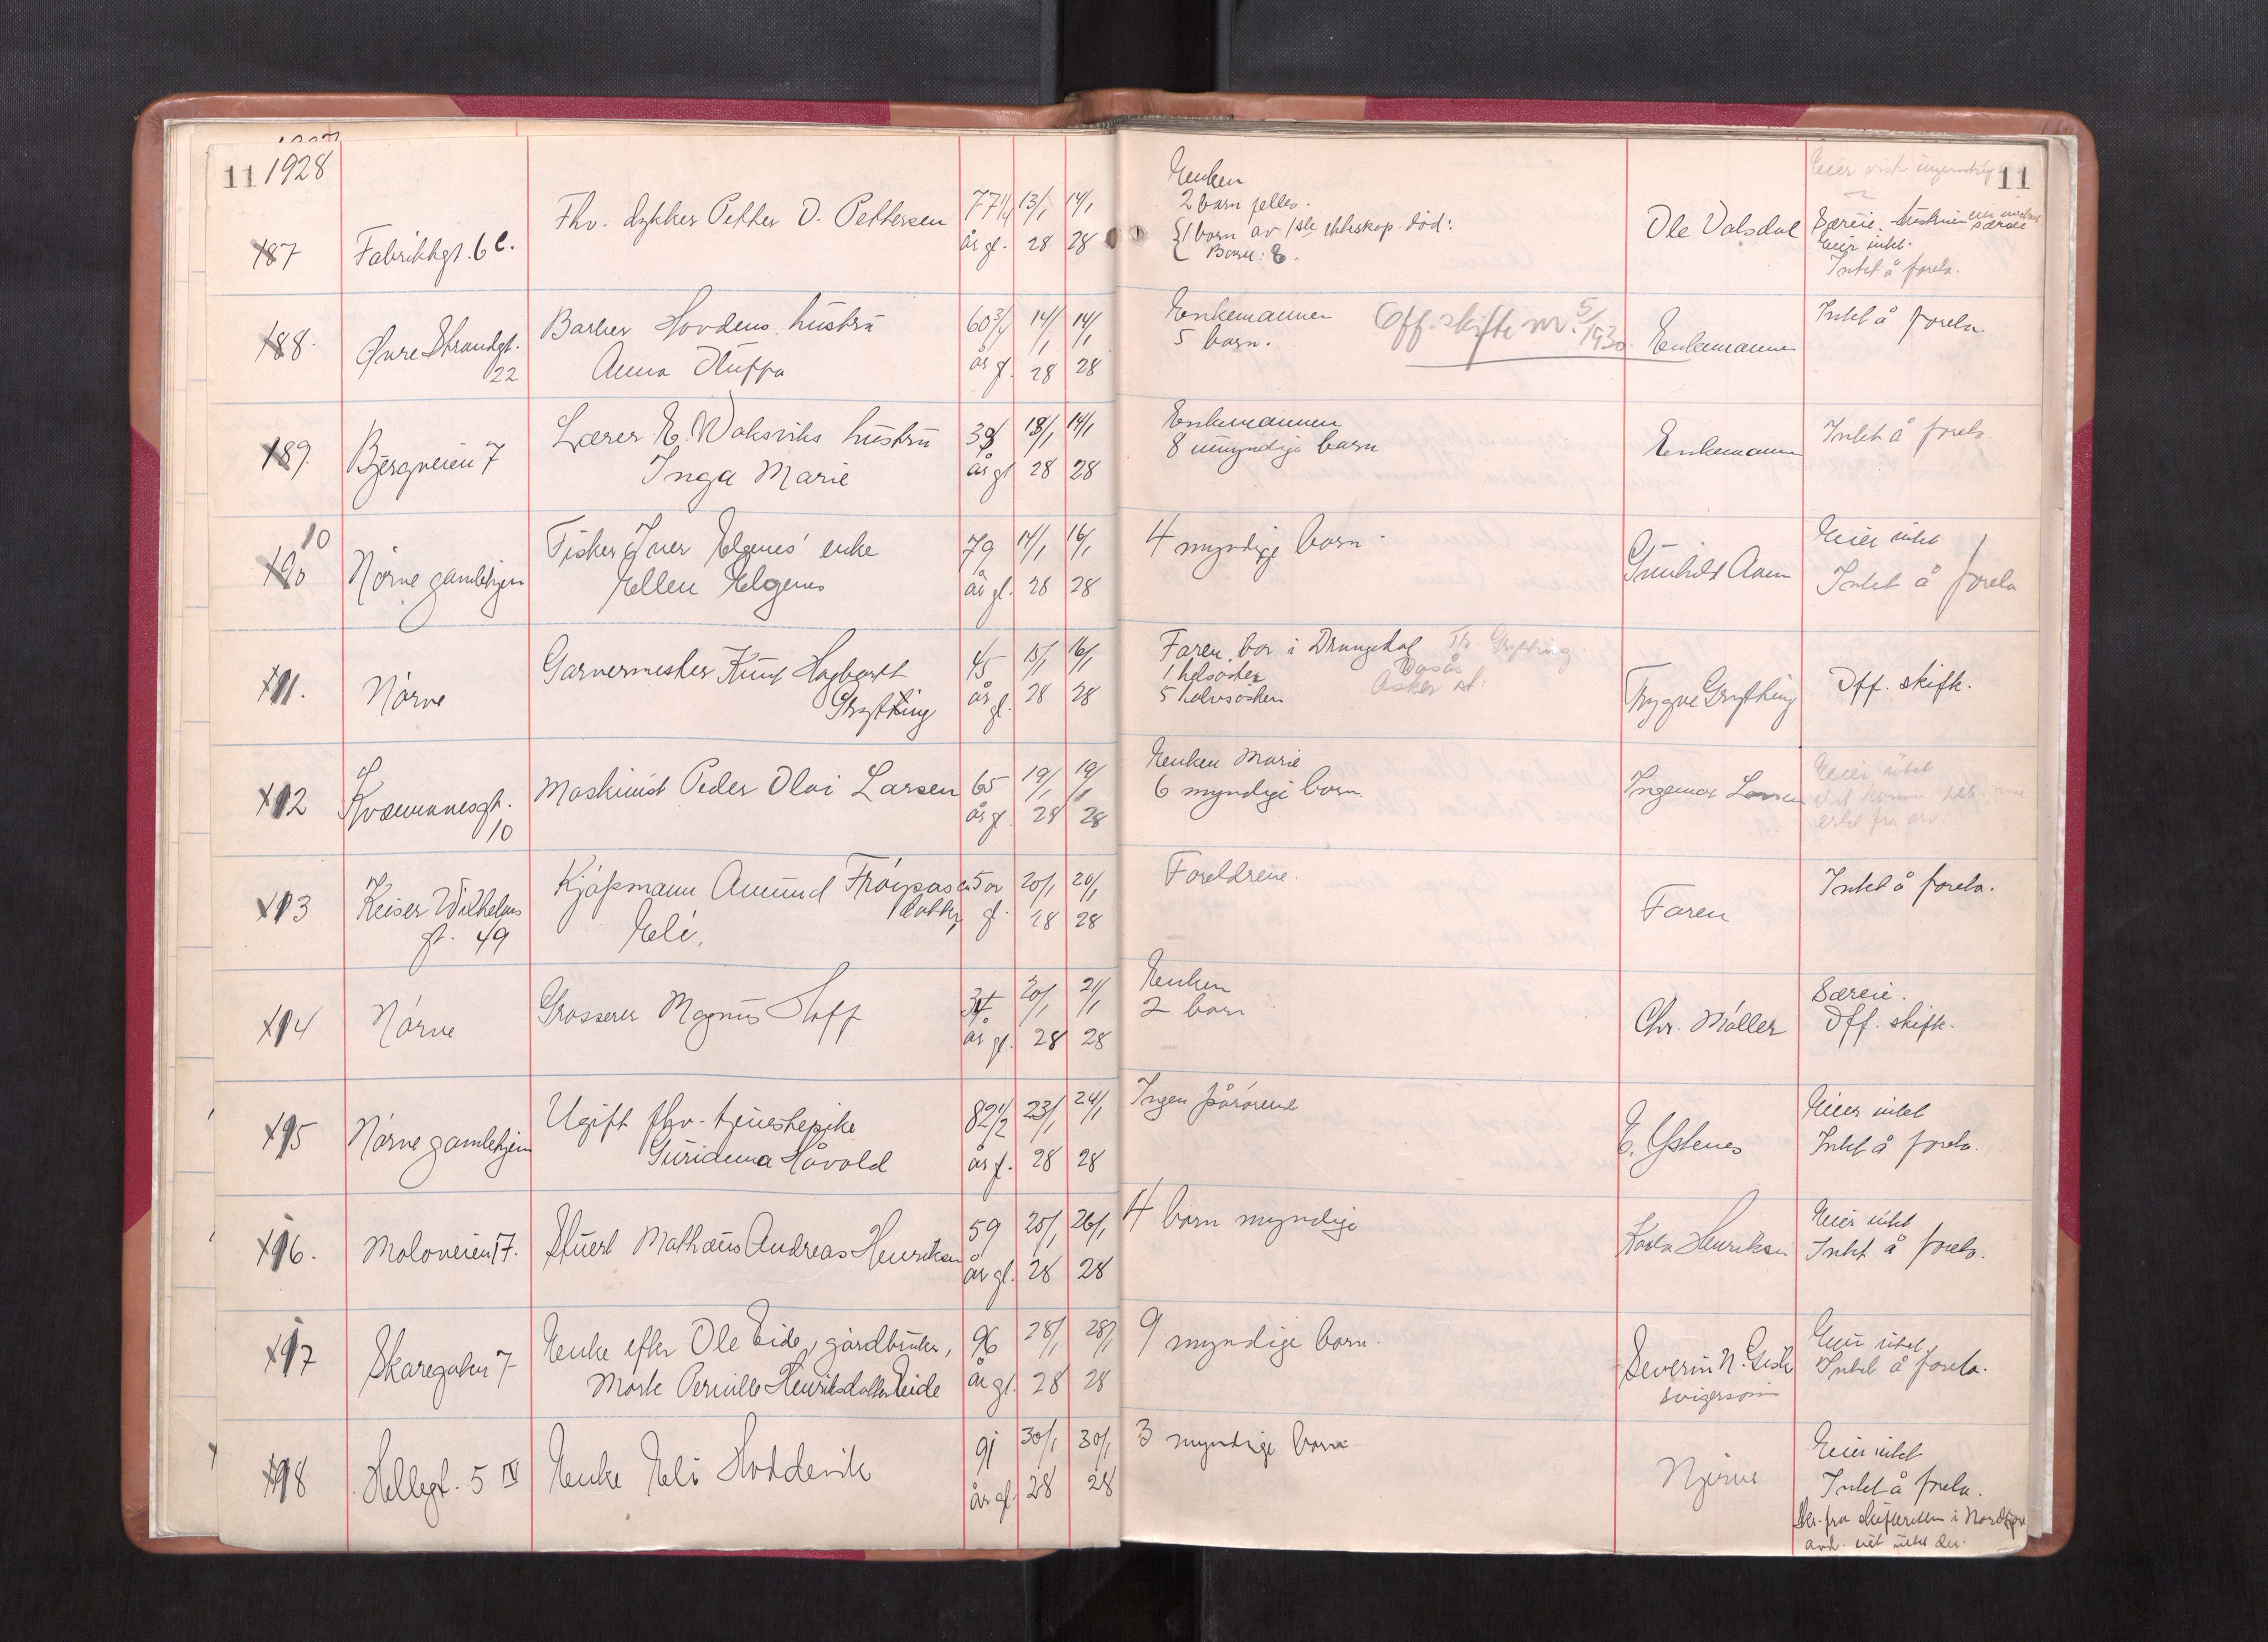 11 1928
7 Fabrikkgt. 6 c. Fhv. dykker Petter O. Pettersen 77 1/4 år gl. 13/1 28 14/1 28
8. Øvre Strandgt. 22 Barber Hovdens hustru
Anna Stuffa 60 3/4 år g. 14/1 28 14/1 28
9. Bjergveien 7 Lærer E. Waksviks hustru
Inga Marie 39 år gl 13/1 28 14/1 28
10 Nørve gamlehjem Fisker Iver Elgenes' enke
Ellen Elgenes 79 år gl. 14/1 28 16/1 28
11. Nørve Garvermester Knut Hagbart
Grytting 45 år gl. 15/1 28 16/1 28
12 Kvænnesgt. 10 Maskinist Peder Olai Larsen 65 år g. 19/1 28 19/1 28
13 Keiser Wilhelms gt. 49 Kjøpmann Amund
datter Eli, 5 år gl. 20/1 28 20/1 28
14 Nørve Grosserer Magnus Hoff 34 år gl. 20/1 28 21/1 28
15 Nørve gamlehjem Ugift fhv. tjenestepike
Guridena Håvold 82 1/2 år g. 23/1 28 24/1 28
16. Moloveien 17. Stuert Mathæus Andreas Henriksen 59 år gl. 25/1 28 26/1 28
17 Skaregaten 7 Enke efter Ole Eide, gårdbruker,
Marte Pernille Henriksdatter Eide 96 år gl. 28/1 28 28/1 28
18 Hellegt. 5 IV Enke Eli Hoddevik 91 år gl. 30/1 28 30/1 28
11
Eier vist ingenting
Enken
2 barn felles.
1 barn av 1ste ekteskap. død:
Barn: 8.
Ole Valsdal
Særeie. Hustruen
eier intet.
Intet å foreta.
Enkemannen
5 barn.
Off. skifte nr. 5/1930.
Enkemannen
Intet å foreta
Enkemannen
8 umyndige barn
Enkemannen
Intet å foreta
4 myndige barn.
Gunhild Aam
Eier intet
Intet å foreta
Faren, bor i Drangedal Th. Grytting.
1 helsøsken
5 halvsøsken
Asker st.
Trygve Grytting
Off. skifte.
Enken Marie
6 myndige barn.
Ingemar Larsen
Eier intet
Foreldrene.
Faren
Intet å foreta.
Enken
2 barn
Chr. Møller
Særeie.
Off. skifte.
Ingen pårørende
E. Ystenes
Eier intet
Intet å foreta.
4 barn myndige
Karla Henriksen
Eier intet
Intet å foreta.
9 myndige barn.
Severin N. Giske
svigersønn
Eier intet.
Intet å foreta.
3 myndige barn
Njerve
Eier intet
Intet å foreta.
fra skifteretten i Nordfjord